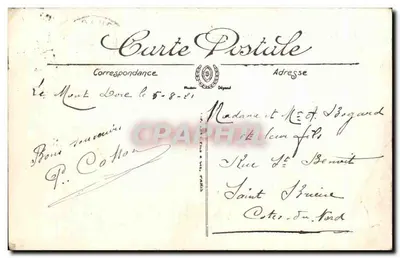 Carte Postale
Correspondance
Adresse
Modèle Déposé
Le Mont Dore le 5-8-21
Bons souvenirs
P. Cotton
Madame et Mr Bogard
et leur fils
Rue St Benoit
Saint Brieuc
Cotes-du-Nord
CARTHAPHILIE